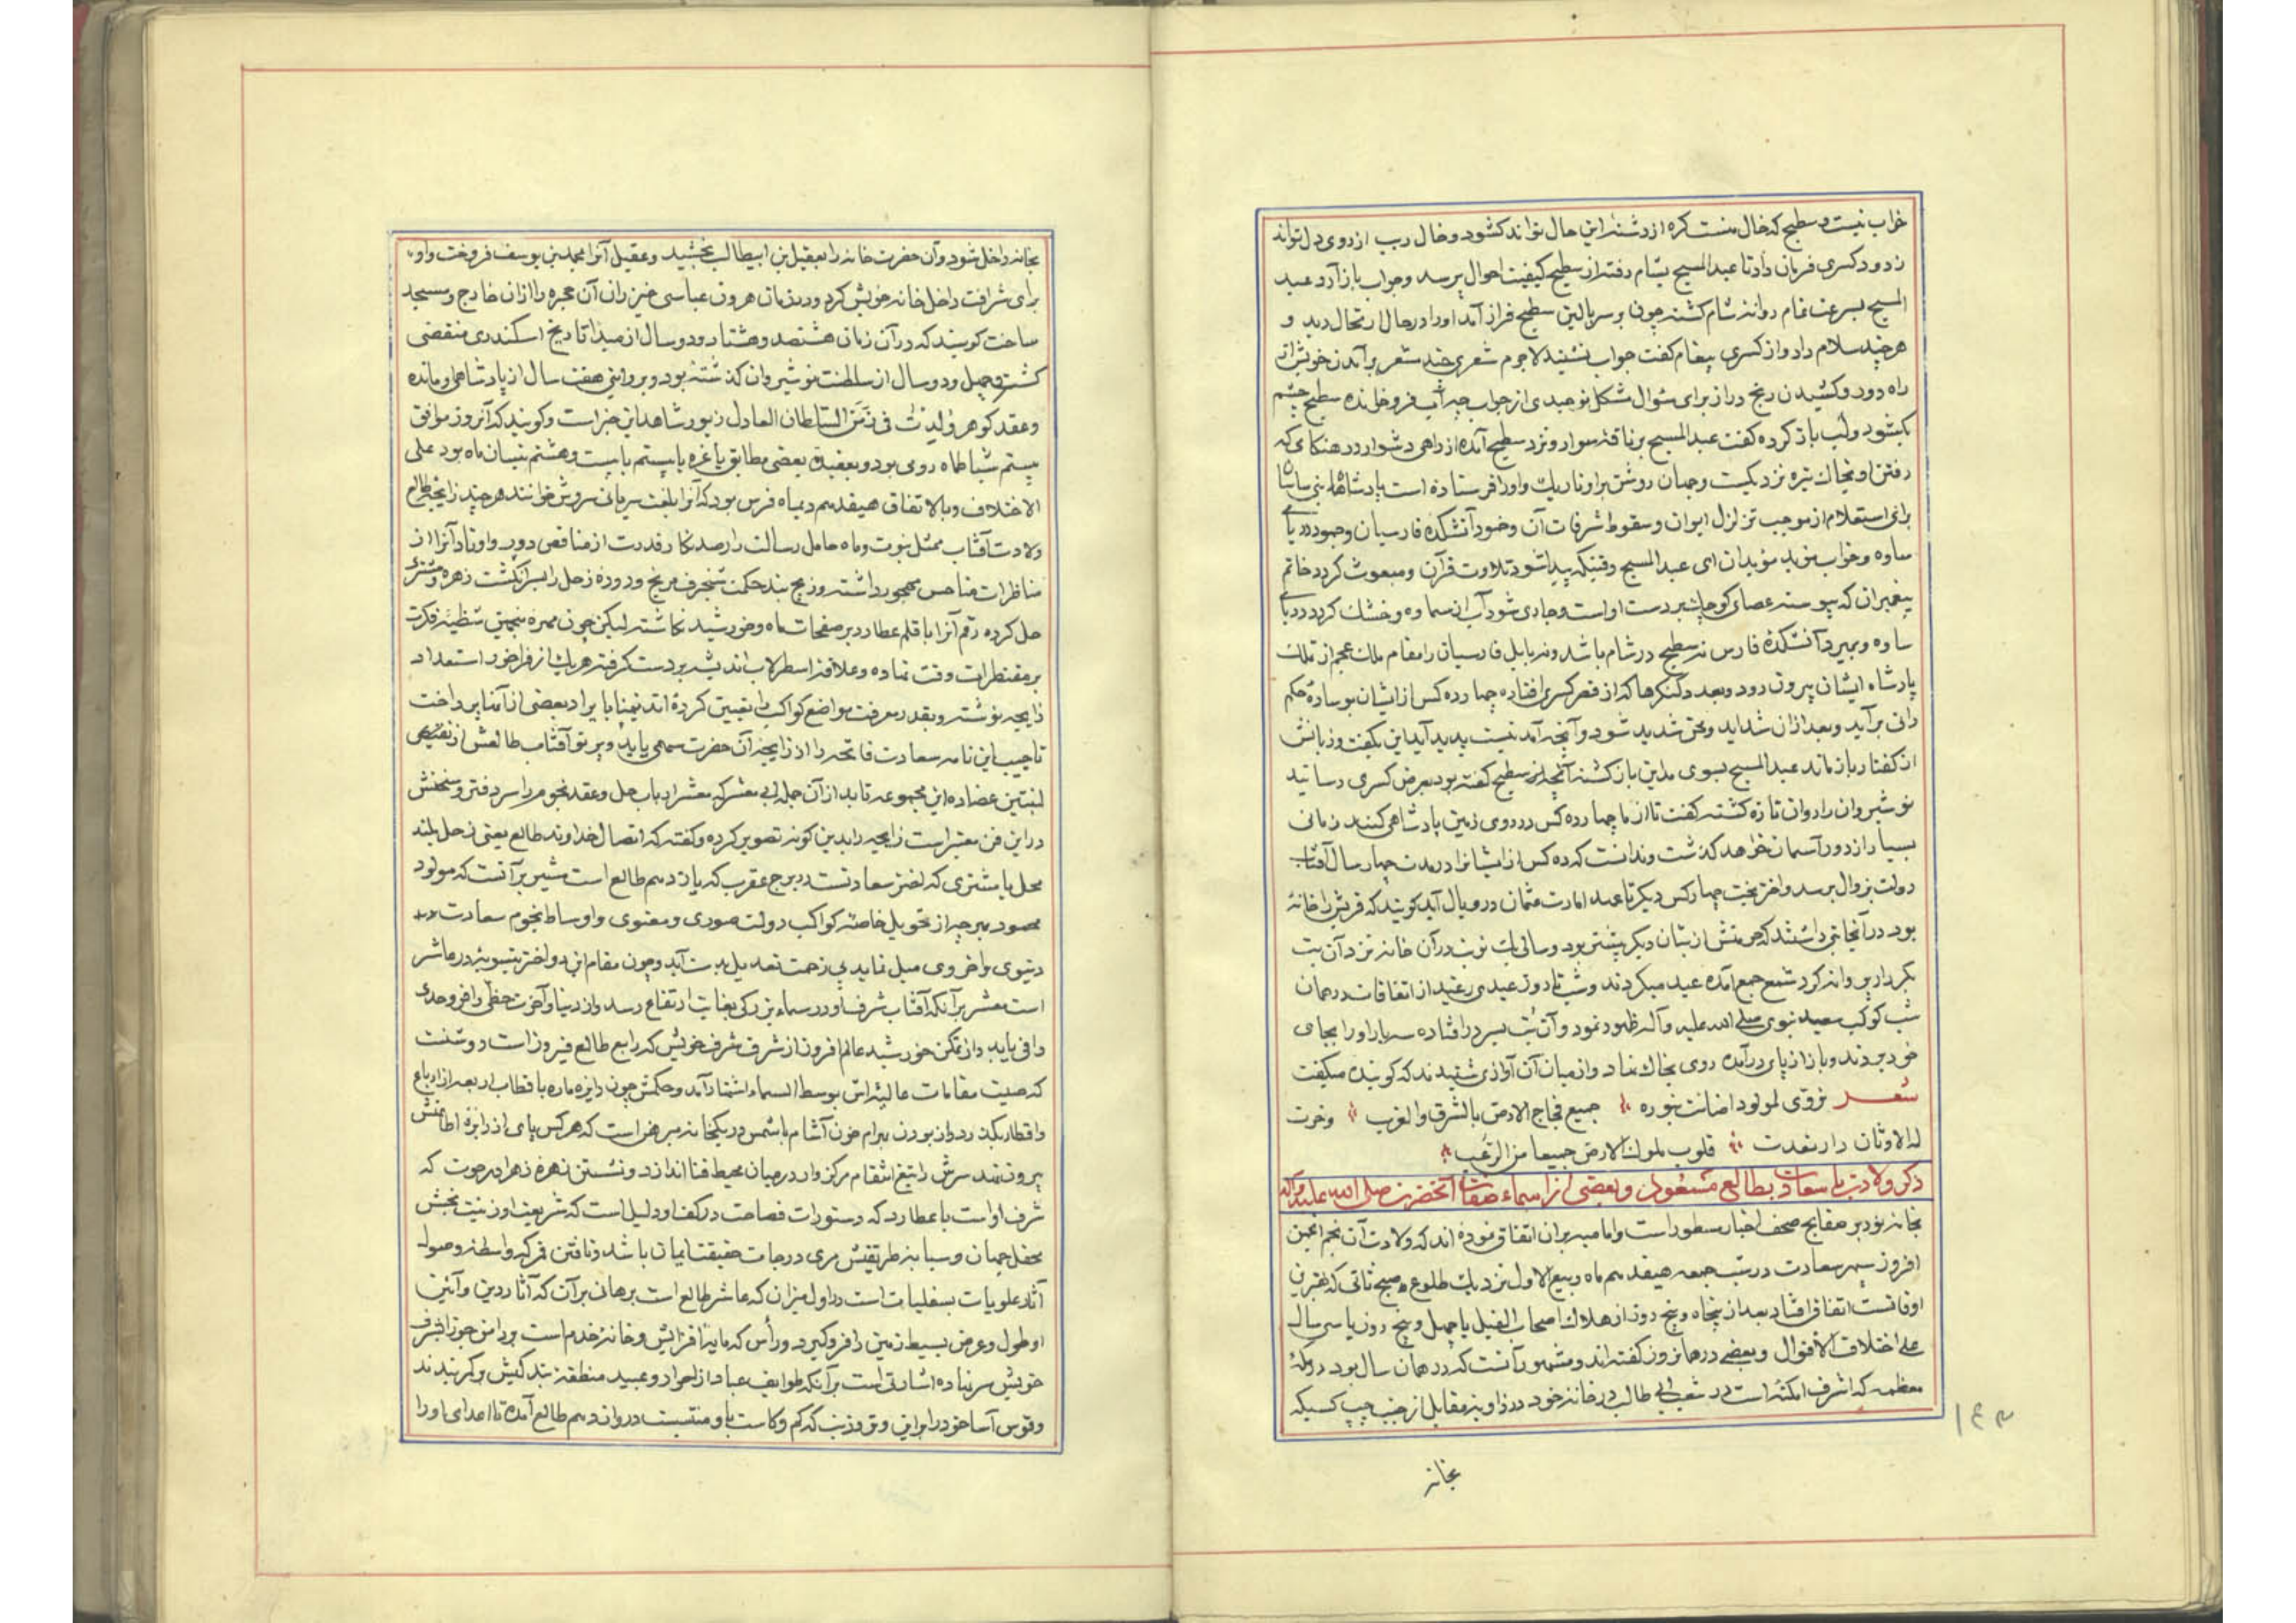 خراب نیست و سطیح که خال منست کره از رشته این حال تواند کشود و خال ریب از روی دل تواند
زدود کسری فرمان داد تا عبد المسیح بشام رفته از سطیح کیفیت احوال پرسد و جواب باز آرد عبد
المسیح بسرعت تمام روانه شام کشته چون بر سر بالین سطیح فراز آمد او را در حال ارتحال دید و
هر چند سلام داد و از کسری پیغام کفت جواب نشنید لاجرم شعری چند مشعر بر آمدن خویش از
راه دور و کشیدن رنج دراز برای سئوال مشکل نومیدی از جواب فرو خوانده سطیح چشم
بکشود و لب باز کرده کفت عبد المسیح بر ناقه سوار و نزد سطیح آمده از راهی دشوار در هنکامی که
رفتن او بخاک تیره نزدیکست و جهان روشن بر او تاریک و او را فرستاده است پادشاه بنی ساسان
برای استعلام از موجب تزلزل ایوان و سقوط شرفات آن و خمود آتشکده فارسیان و جمود دریای
ساوه و خواب موبد موبدان ای عبد المسیح وقتیکه پیدا شود تلاوت قرآن و مبعوث کردد خاتم
پیغمبران که پیوسته عصای کوچک بر دست اوست و جاری شود آب از سماوه و خشک کردد دریای
ساوه و بمیرد آتشکده فارس نه سطیح در شام باشد و نه بابل فارسیان را مقام ملک عجم از تملک
پادشاه ایشان بیرون رود و بعدد کنکرها که از قصر کسری افتاده چهارده کس از ایشان بوساده حکم
رانی برآید و بعد از آن شداید و محن شدید شود و آنچه آمد نیست پدید آید این بکفت و زبانش
از کفتار باز ماند عبد المسیح بسوی مداین باز کشته آنچه از سطیح کفته بود بعرض کسری رسانید
نوشیروان را روان تازه کشته کفت تا از ما چهارده کس در روی زمین پادشاهی کنند زمانی
بسیار از دور آسمان خواهد کذشت و ندانست که ده کس از ایشان را در مدت چهار سال آفتاب
دولت بزوال برسد و اختر بخت چهار کس دیکر تا عهد امارت عثمان در وبال آید کویند که قریش را خانه
بود در آنجا بتی داشتند که حرمتش از بتان دیکر بیشتر بود و سالی یک نوبت در آن خانه نزد آن بت
بکردار پروانه کرد شمع جمع آمده عید میکردند و شب تا روز عیدی رغید از اتفاقات در همان
شب کوکب سعید نبوی صلی الله علیه و آله ظهور نمود و آن بت بسر در افتاده سه بار او را بجای
خود بردند و باز از پای درآمده روی بخاک نهاد و از میان آن آوازی شنیدند که کوینده میکفت
شعـــر تردّی لمولود اضائت بنوره جمیع فجاج الارض بالشرق و الغرب وخرت
له الاوثان دارنعدت قلوب ملوک الارض جمیعا من الرعب
ذکر ولادت با سعادت بطالع مسعود و بعضی از اسماء صفات آنحضرت صلی الله علیه و آله
بخانه نور بر صفایح صحف اخبار مسطور است و امامیه بر آن اتفاق نموده اند که ولادت آن نجم انجمن
افروز سپهر سعادت در شب جمعه هیفدهم ماه ربیع الاول نزدیک طلوع صبح ثانی که بهترین
اوقاتست اتفاق افتاد بعد از پنجاه و پنج روز از هلاک اصحاب الفیل یا چهل و پنج روز یا سی سال
علی اختلاف الاقوال و بعضی در همانروز کفته اند و مشهور آنست که در همان سال بود در مکه
معظمه که اشرف امکنه است در شعب ابی طالب در خانه خود در زاویه مقابل از جنب چپ کسیکه
بخانه
۱۴۳
بخانه داخل شود و آن حضرت خانه را بعقیل بن ابیطالب بخشید و عقیل آنرا بمحمد بن یوسف فروخت و او
برای شرافت داخل خانه خویش کرد و در زمان هرون عباسی خیزران آن حجره را از آن خارج و مسجد
ساخت کویند که در آن زمان هشتصد و هشتاد و دو سال از مبداء تاریخ اسکندری منقضی
کشته و چهل و دو سال از سلطنت نوشیروان کذشته بود و بروایتی هفت سال از پادشاهی او مانده
و عقد کوهر ولدت فی زمن السلطان العادل زیور شاهد این خبر است و کویند که آنروز موافق
بیستم شباط ماه رومی بود و بعقیدۀ بعضی مطابق با غره یا بیستم یا بیست و هشتم نیسان ماه بود علی
الاختلاف و بالاتفاق هیفدهم دیماه فرس بود که آنرا بلغت سریانی سروش خوانند هر چند زایجه طالع
ولادت آفتاب ممثل نبوت و ماه حامل رسالت را رصد نکار قدرت از مناقص دور و اوتاد آنرا از
مناظرات مناحس مهجور داشته و زیج بند حکمت شنجرف مریخ و دوده زحل را بسر انکشت زهره و مشتری
حل کرده رقم آنرا با قلم عطارد بر صفحات ماه و خورشید نکاشته لیکن چون مهره منجمین شظیه فکرت
بر مقنطرات وقت نهاده و علاقه اسطرلاب اندیشه بر دست کرفته هر یک از فراخور استعداد
زایچه نوشته و بقدر معرفت مواضع کواکب را تعیین کرده اند تیمنا بایراد بعضی از آنها پرداخت
تا جیب این نامه سعادت فاتحه را از زایچه آن حضرت سهمی یابد و پرتو آفتاب طالعش از
لبنتین عضاده این مجموعه تابد از آن جمله ابی معشر که معشر ارباب حل و عقد نجوم را سر دفتر و سخنش
در این فن معتبر است زایچه را بدین کونه تصویر کرده و کفته که اتصال خداوند طالع یعنی زحل بلند
محل با مشتری که اختر سعادتست در برج عقرب که یازدهم طالع است مشیر بر آنست که مولود
مسعود بهر چه از تحویل خاصه کواکب دولت صوری و معنوی و اوساط نجوم سعادت
دنیوی و اخروی میل نماید بی زحمت تعدیل بدست آید و چون مقام این دو اختر بتسویه در عاشر
است مشعر بر آنکه آفتاب شرف او در سماء بزرکی بغایت ارتفاع رسد و از دنیا و آخرت حظی وافر و حدی
وافی یابد و از تمکن خورشید عالم افروز از شرف شرف خویش که رابع طالع فیروز است روشنست
که صیت مقامات عالیه اش بوسط السماء اشتهار آمد و حکمش چون دایره ماره باقطاب اربعه از ارباع
و اقطار بکذرد و از بودن بهرام خون آشام با شمس در یکخانه مبرهن است که هر کس پای از دایرۀ اطاعتش
بیرون نهد سرش را تیغ انتقام مرکز وار در میان محیط فنا اندازد و نشستن زهره زهرا در حوت که
شرف اوست با عطارد که دستورات فصاحت در کف او دلیل است که شریعت او زینت بخش
محفل جهان و سبابه طریقتش مری درجات حقیقت ایمان باشد و تافتن قمر که واسطه وصول
آثار علویات بسفلیات است در اول میزان که عاشر طالع است برهانی بر آن که آثار دین و آئین
او طول و عرض بسیط زمین را فرو کیرد و رأس که مایه افزایش و خانه خدم است و در اوج جوزا بشرف
خویش سر نهاده اشارتی است بر آنکه طوایف عباد از احرار و عبید منطقه بندکیش بر کمر بندند
و قوس آسا خود را و ذنب که کم و کاست با و منتسبست در دوازدهم طالع آمده تا اعدای او را